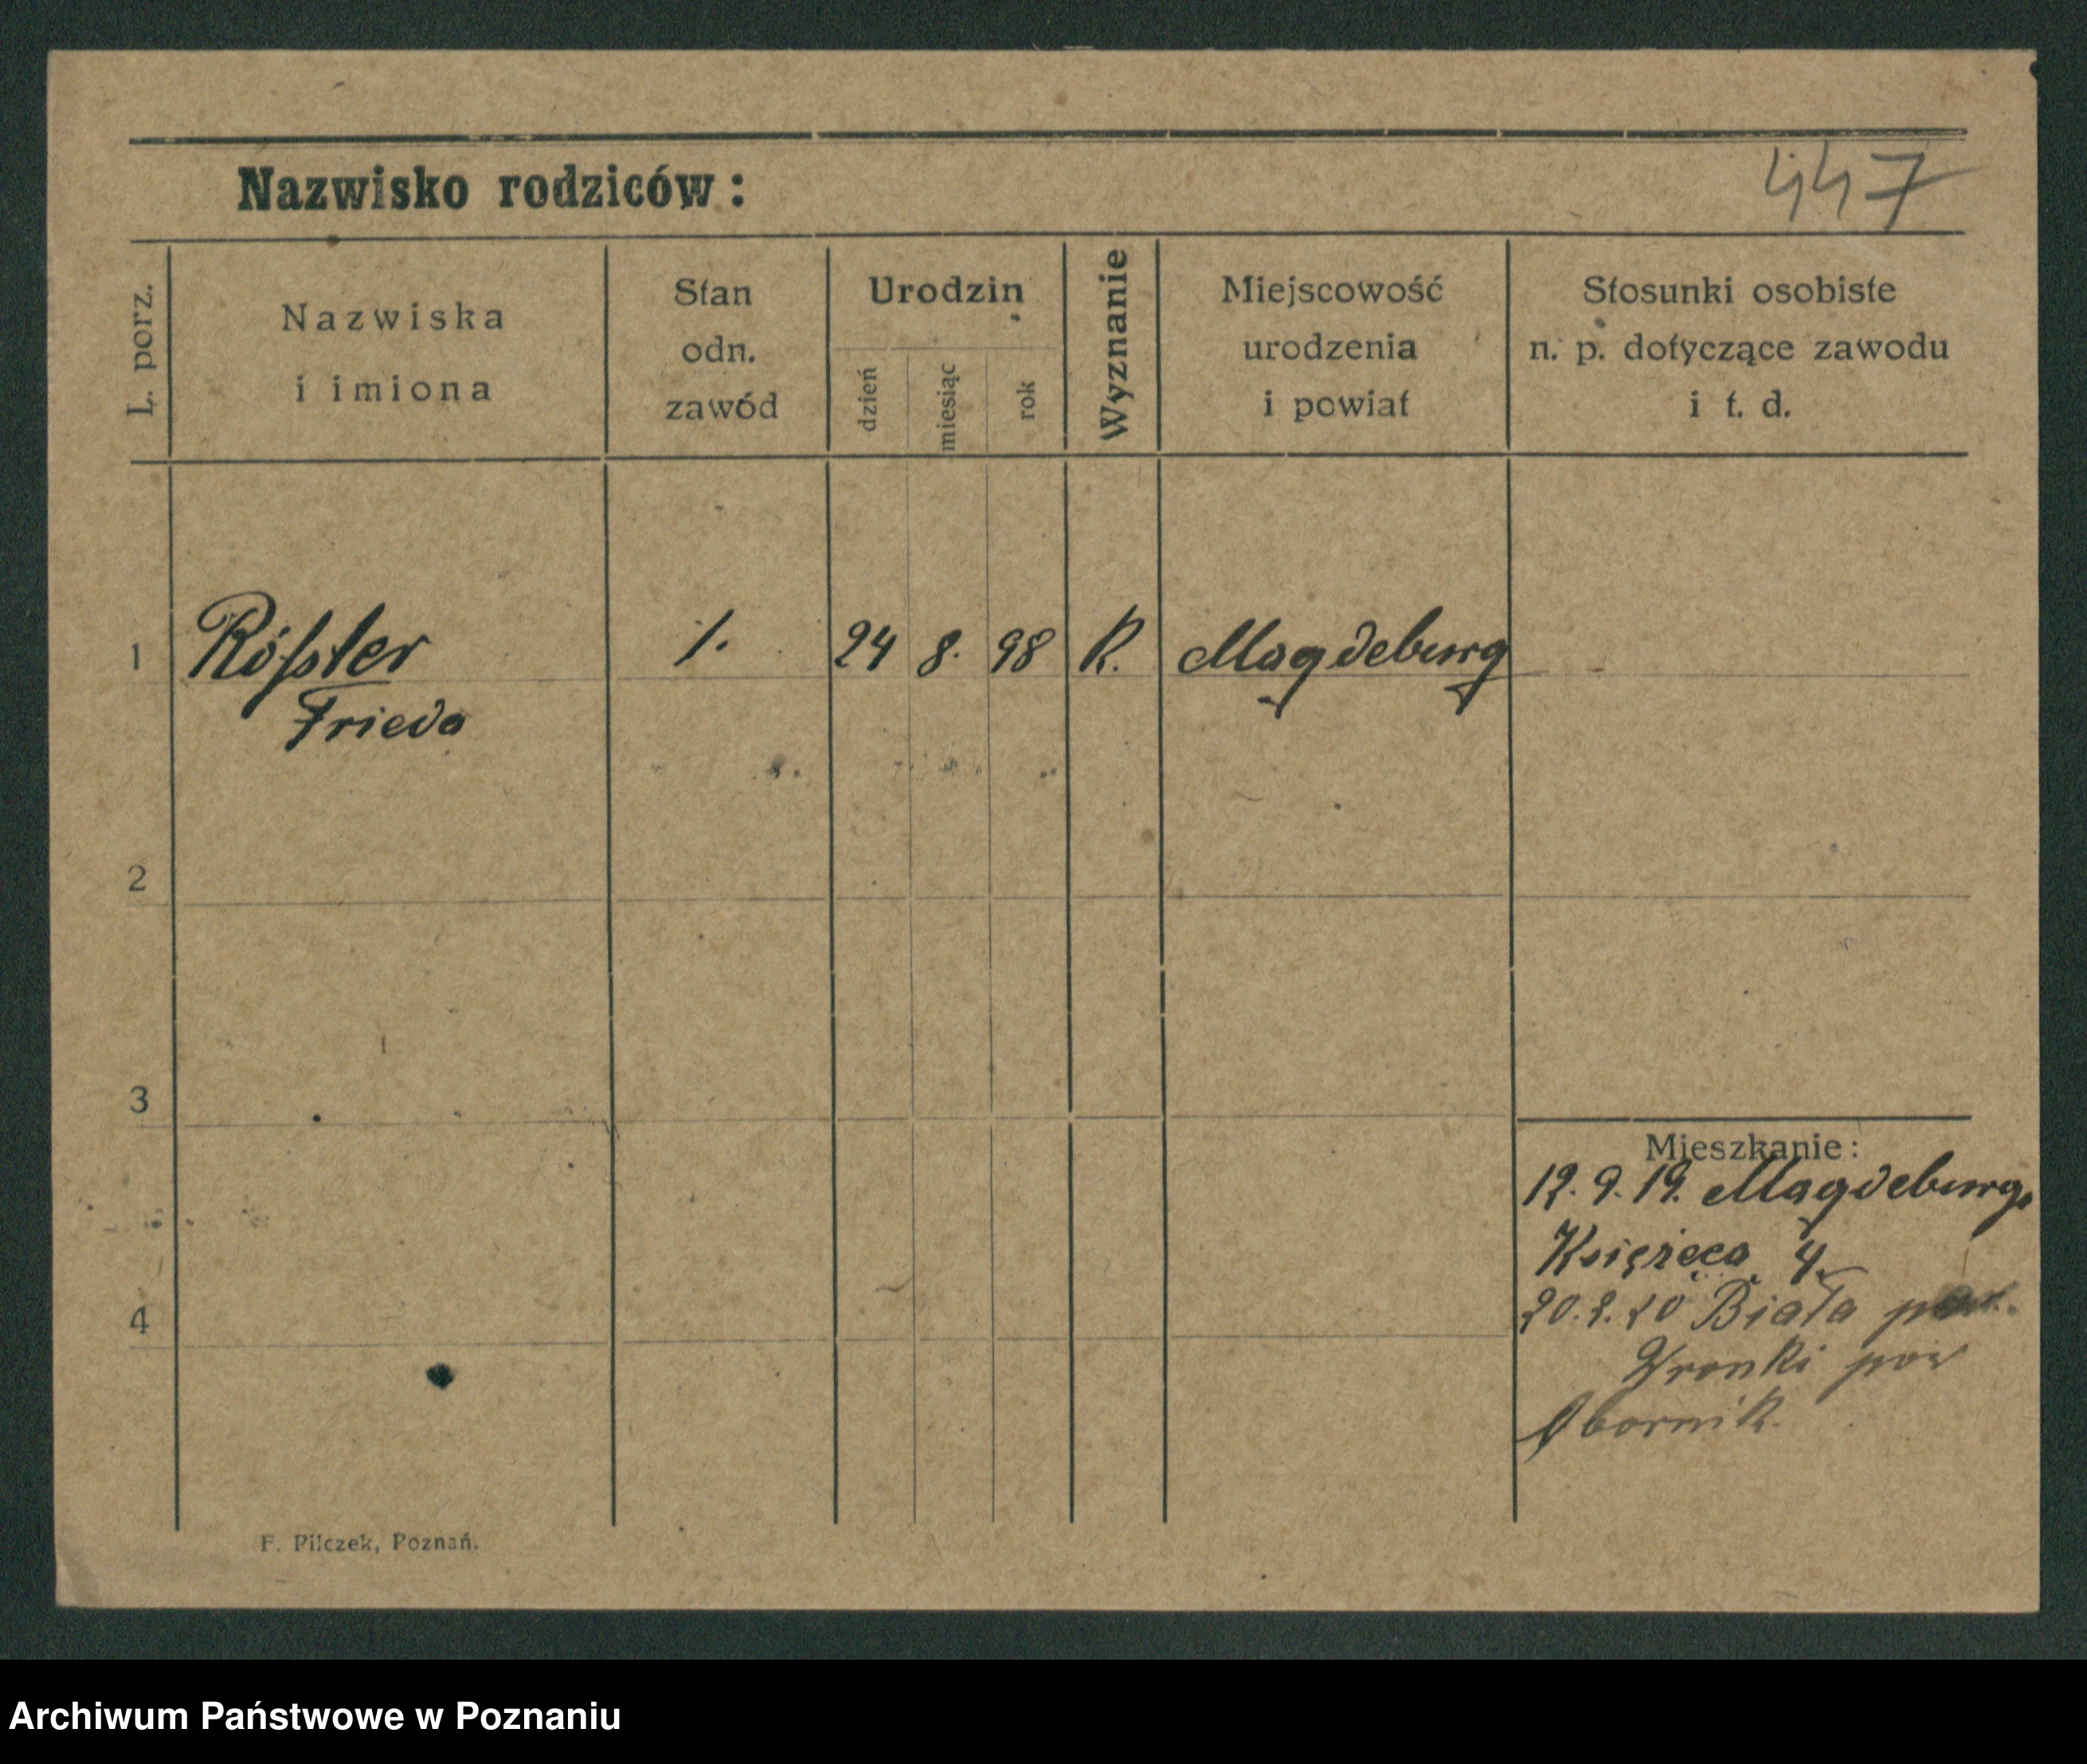 Nazwisko rodziców:
447
L. porz.
Nazwiska
i imiona
Stan
odn.
zawód
Urodzin
dzień
miesiąc
rok
Wyznanie
Miejscowość
urodzenia
i powiat
Stosunki osobiste
n. p. dotyczące zawodu
i t. d.
1
Rößler
Frieda
/.
24
8.
98
K.
Magdeburg
2
3
4
Mieszkanie:
12. 9. 19. Magdeburg.
Książęca 4
20. 2. 20 Biała
Wronki pow
Obornik.
F. Pilczek, Poznań.
Archiwum Państwowe w Poznaniu